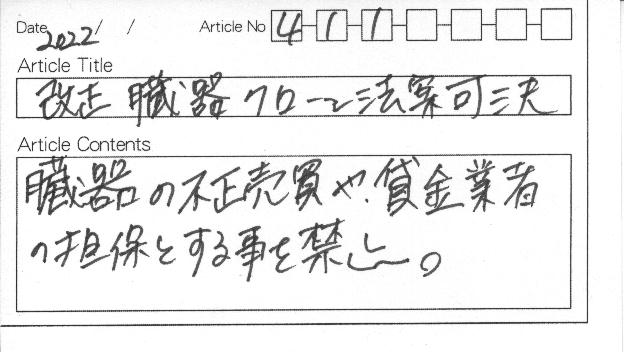 Date 2022/ /
Article No 4-1-1
Article Title
改正 臓器クローン法案可決
Article Contents
臓器の不正売買や、貸金業者
の担保とする事を禁止。